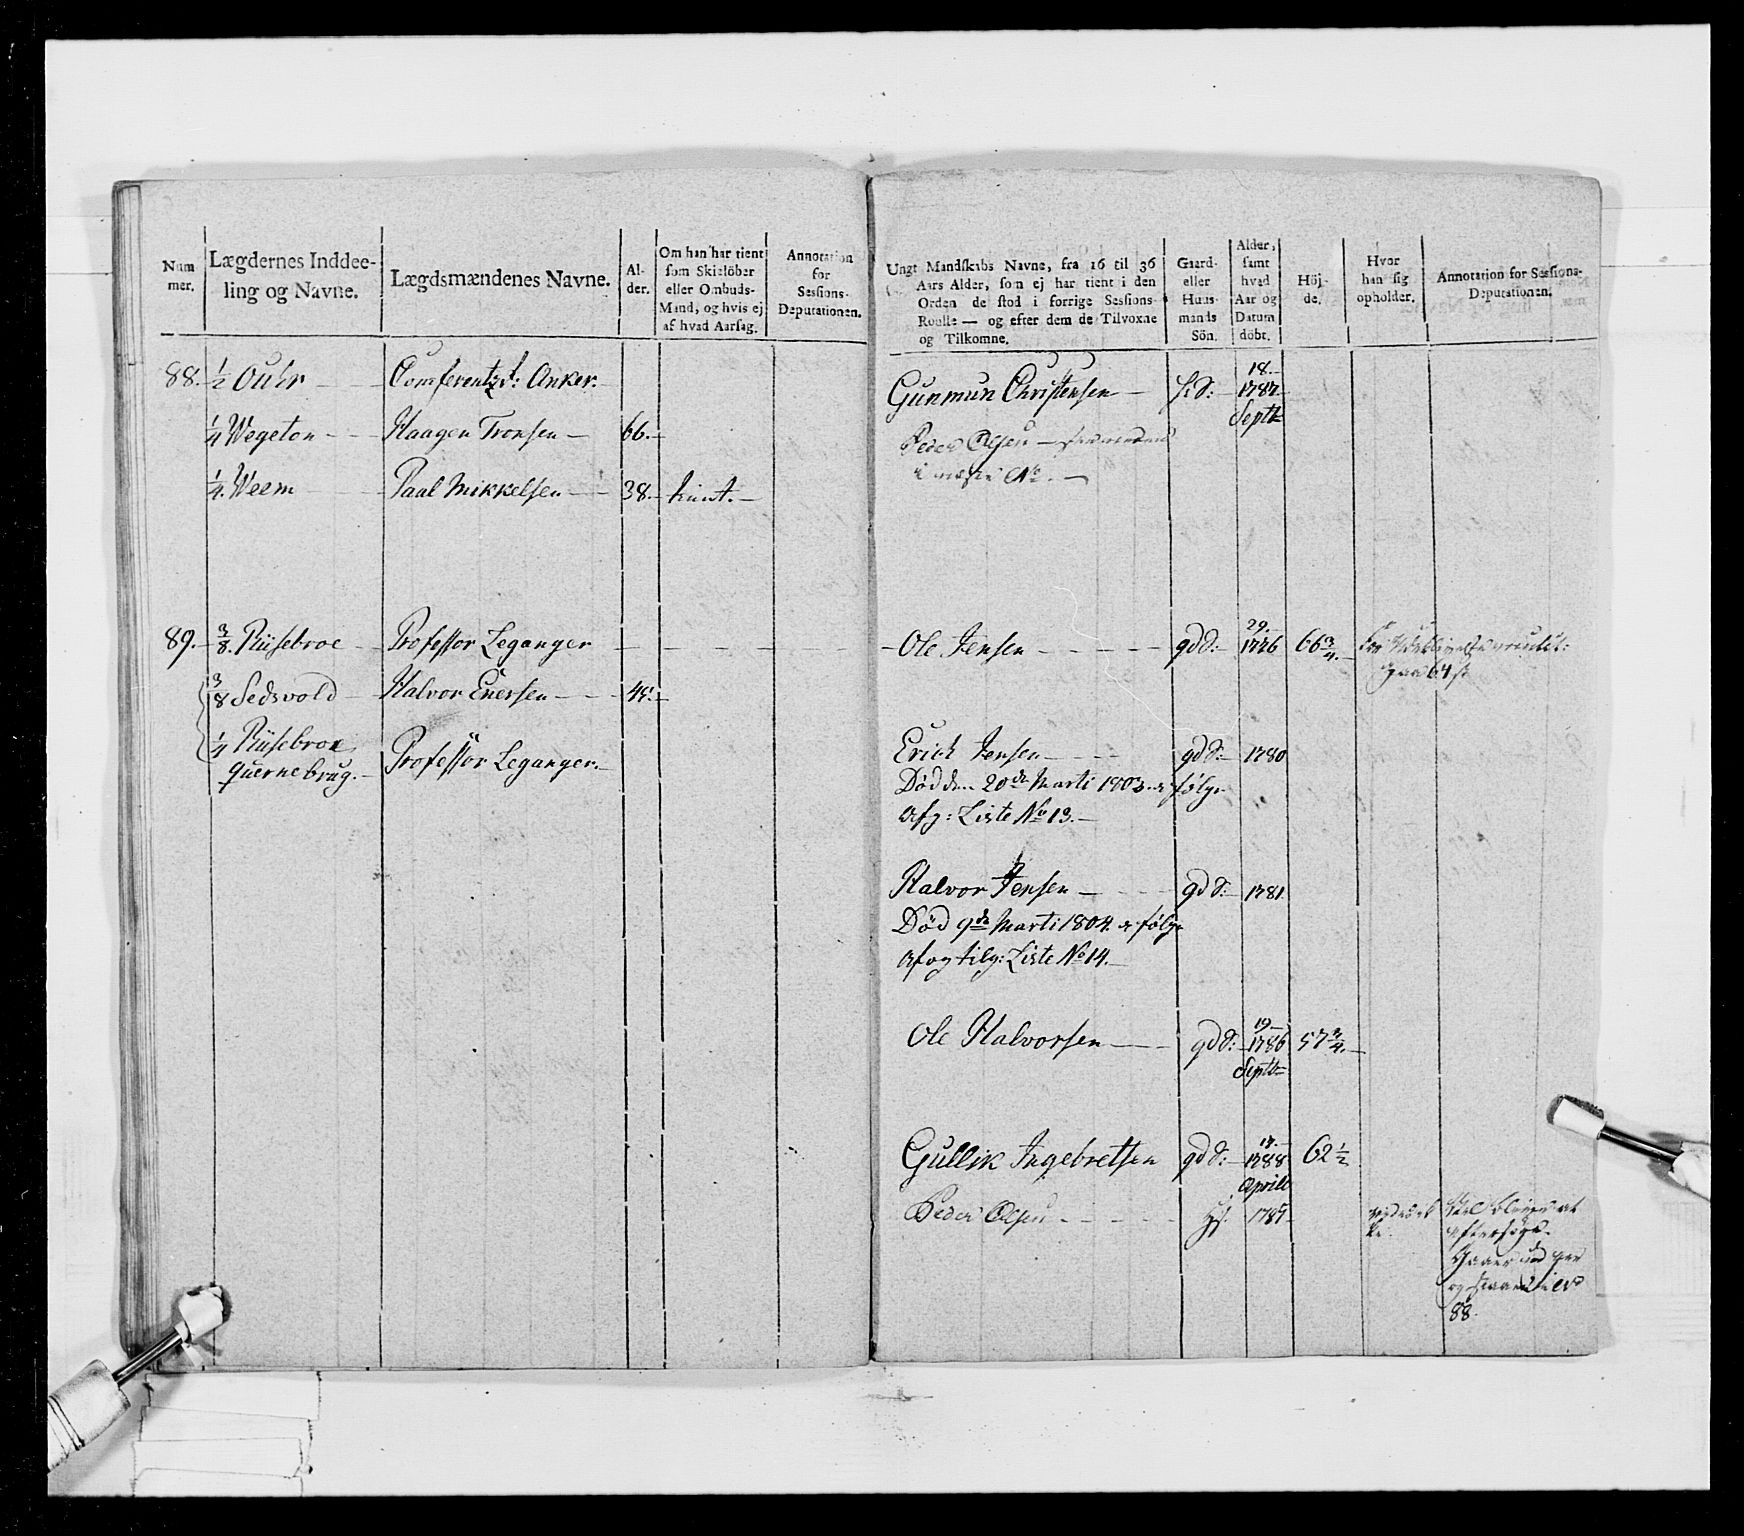 Num
mer.
Lægdernes Inddee-
ling og Navne.
Lægdsmændenes Navne.
Al-
der.
Om han har tient
som Skieløber
eller Ombuds-
Mand, og hvis ej
af hvad Aarsag.
Annotation
for
Sessions-
Deputationen.
88. 1/2 Ouhr Conferentzrd: Anker.
1/4 Wegeton Haagen Tronsen 66.
1/4 Weem Paal Mikkelsen 38. tient.
89. 3/8 Riisebroe Professor Leganger
3/8 Sedsvold Halvor Enersen 45.
1/4 Riisebroe
quernebrug. Professor Leganger.
Ungt Mandskabs Navne, fra 16 til 36
Aars Alder, som ej har tient i den
Orden de stod i forrige Sessions-
Roulle — og efter dem de Tilvoxne
og Tilkomne.
Gaard-
eller
Huus-
mands
Sön.
Alder,
samt
hvad
Aar og
Datum
döbt.
Höj-
de.
Hvor
han sig
opholder.
Annotation for Sessions-
Deputationen.
18.
Gunmun Christensen 1787
Septb
Peder Olsen
i næste No.
29.
Ole Jensen gd S: 1776 66 3/4
Erich Jensen gd S: 1780
Død den 20de Marti 1803 følge
Afg: Liste No 13.
Halvor Jensen gd S: 1781
Død 9de Marti 1804 følge
Af og tilg: Liste No 14.
19
Ole Halvorsen gd S: 1786 57 3/4
Septb
Gullik Ingebretsen gd S: 1788 62 1/2
Aprill
Peder Olsen 1787
88.